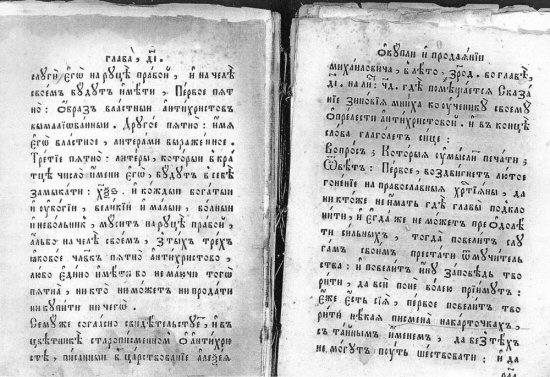 глава̀, д҃і.
слуги̑ єгѡ̀ на руцѣ̀ правой, и҆ на челѣ̀
своемъ будутъ и҆мѣти, Первое пят
но: Ѻбразъ властный а҆нтихристовъ
вымалѧванный. Другое пѧтно: и҆мѧ
єгѡ̀ властное, литерами выраженное.
Третїе пѧтно: литеры, которыи в крѧ
тцѣ число̀ и҆мени єгѡ̀, будутъ в себѣ
замыкати: х҃ѯѕ. и҆ кождыи богатыи
и҆ ѹбогїи, великїи и҆ малыи, волныи
и҆ неволникъ, муситъ на руцѣ правой,
а҆льбо на челѣ своемъ, з тыхъ трехъ
ꙗковое пѧтно а҆нтихристово,
любо єдино имѣти бо не маючи тогѡ
пѧтна̀, никто не можетъ ни продати
ни купити ничегѡ.
Сему же согласно свидѣтельствуетъ, и҆ въ
цвѣтникѣ старописменомъ ѡ а҆нтихри
стѣ, писанныи в царствованїе алеѯѧ
Ѻ купли и҆ продаѧнїи
михаиловича, в лѣто, зрод. во главѣ,
д҃і. на ли: ч҃д. гдѣ помѣщаетсѧ Сказа
нїе зиновїѧ мниха ко ученику своему
ѡ прелести антихристовой. и҆ въ концѣ
слова глаголетъ єще:
Вопросъ; Которыѧ сумыслы печати;
Ѿвѣтъ: Первое, воздвигнетъ лютое
гоненїе на православныѧ хр҃тїѧны, да
никтоже не имать гдѣ главы̀ подкло
нити, и҆ єгда же не можетъ преодолѣ
ти сильныхъ, тогда̀ повелитъ слу
гамъ своимъ престати ѿ мучитель
ства: и҆ повелитъ и҆ну заповѣдь тво
рити, да всѝ поне волею прїимутъ:
Єже єсть сїѧ, первое повелитъ тво
рити нѣкаѧ писмена̀ на карточкахъ,
съ тайнымъ именемъ, да без тѣхъ
не могутъ путь шествовати: и҆ да